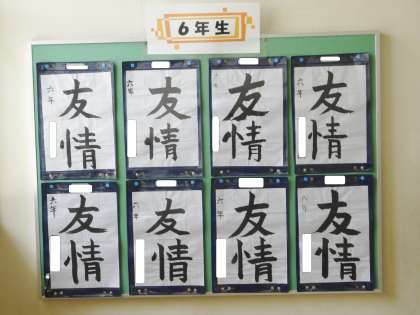 6年生
六年
友情
六年
友情
友情
六年
友情
六年
友情
六年
友情
六年
友情
六年
友情